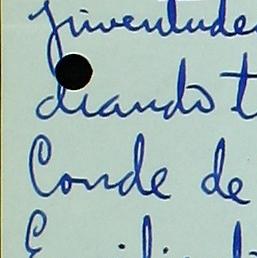 juventude
diando t
Conde de